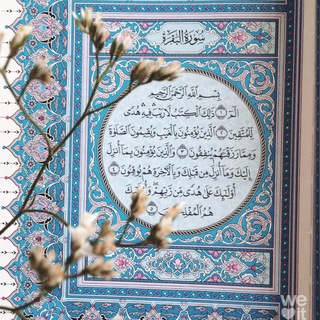 سُورَةُ البَقَرَةِ
بِسْمِ اللَّهِ الرَّحْمَنِ الرَّحِيمِ
الٓمٓ ١ ذَٰلِكَ الْكِتَٰبُ لَا رَيْبَ فِيهِ هُدًى
لِّلْمُتَّقِينَ ٢ الَّذِينَ يُؤْمِنُونَ بِالْغَيْبِ وَيُقِيمُونَ الصَّلَوٰةَ
وَمِمَّا رَزَقْنَٰهُمْ يُنفِقُونَ ٣ وَالَّذِينَ يُؤْمِنُونَ بِمَا أُنزِلَ
إِلَيْكَ وَمَا أُنزِلَ مِن قَبْلِكَ وَبِالْآخِرَةِ هُمْ يُوقِنُونَ ٤
أُولَٰئِكَ عَلَىٰ هُدًى مِّن رَّبِّهِمْ وَأُولَٰئِكَ
هُمُ الْمُفْلِحُونَ ٥
we
it